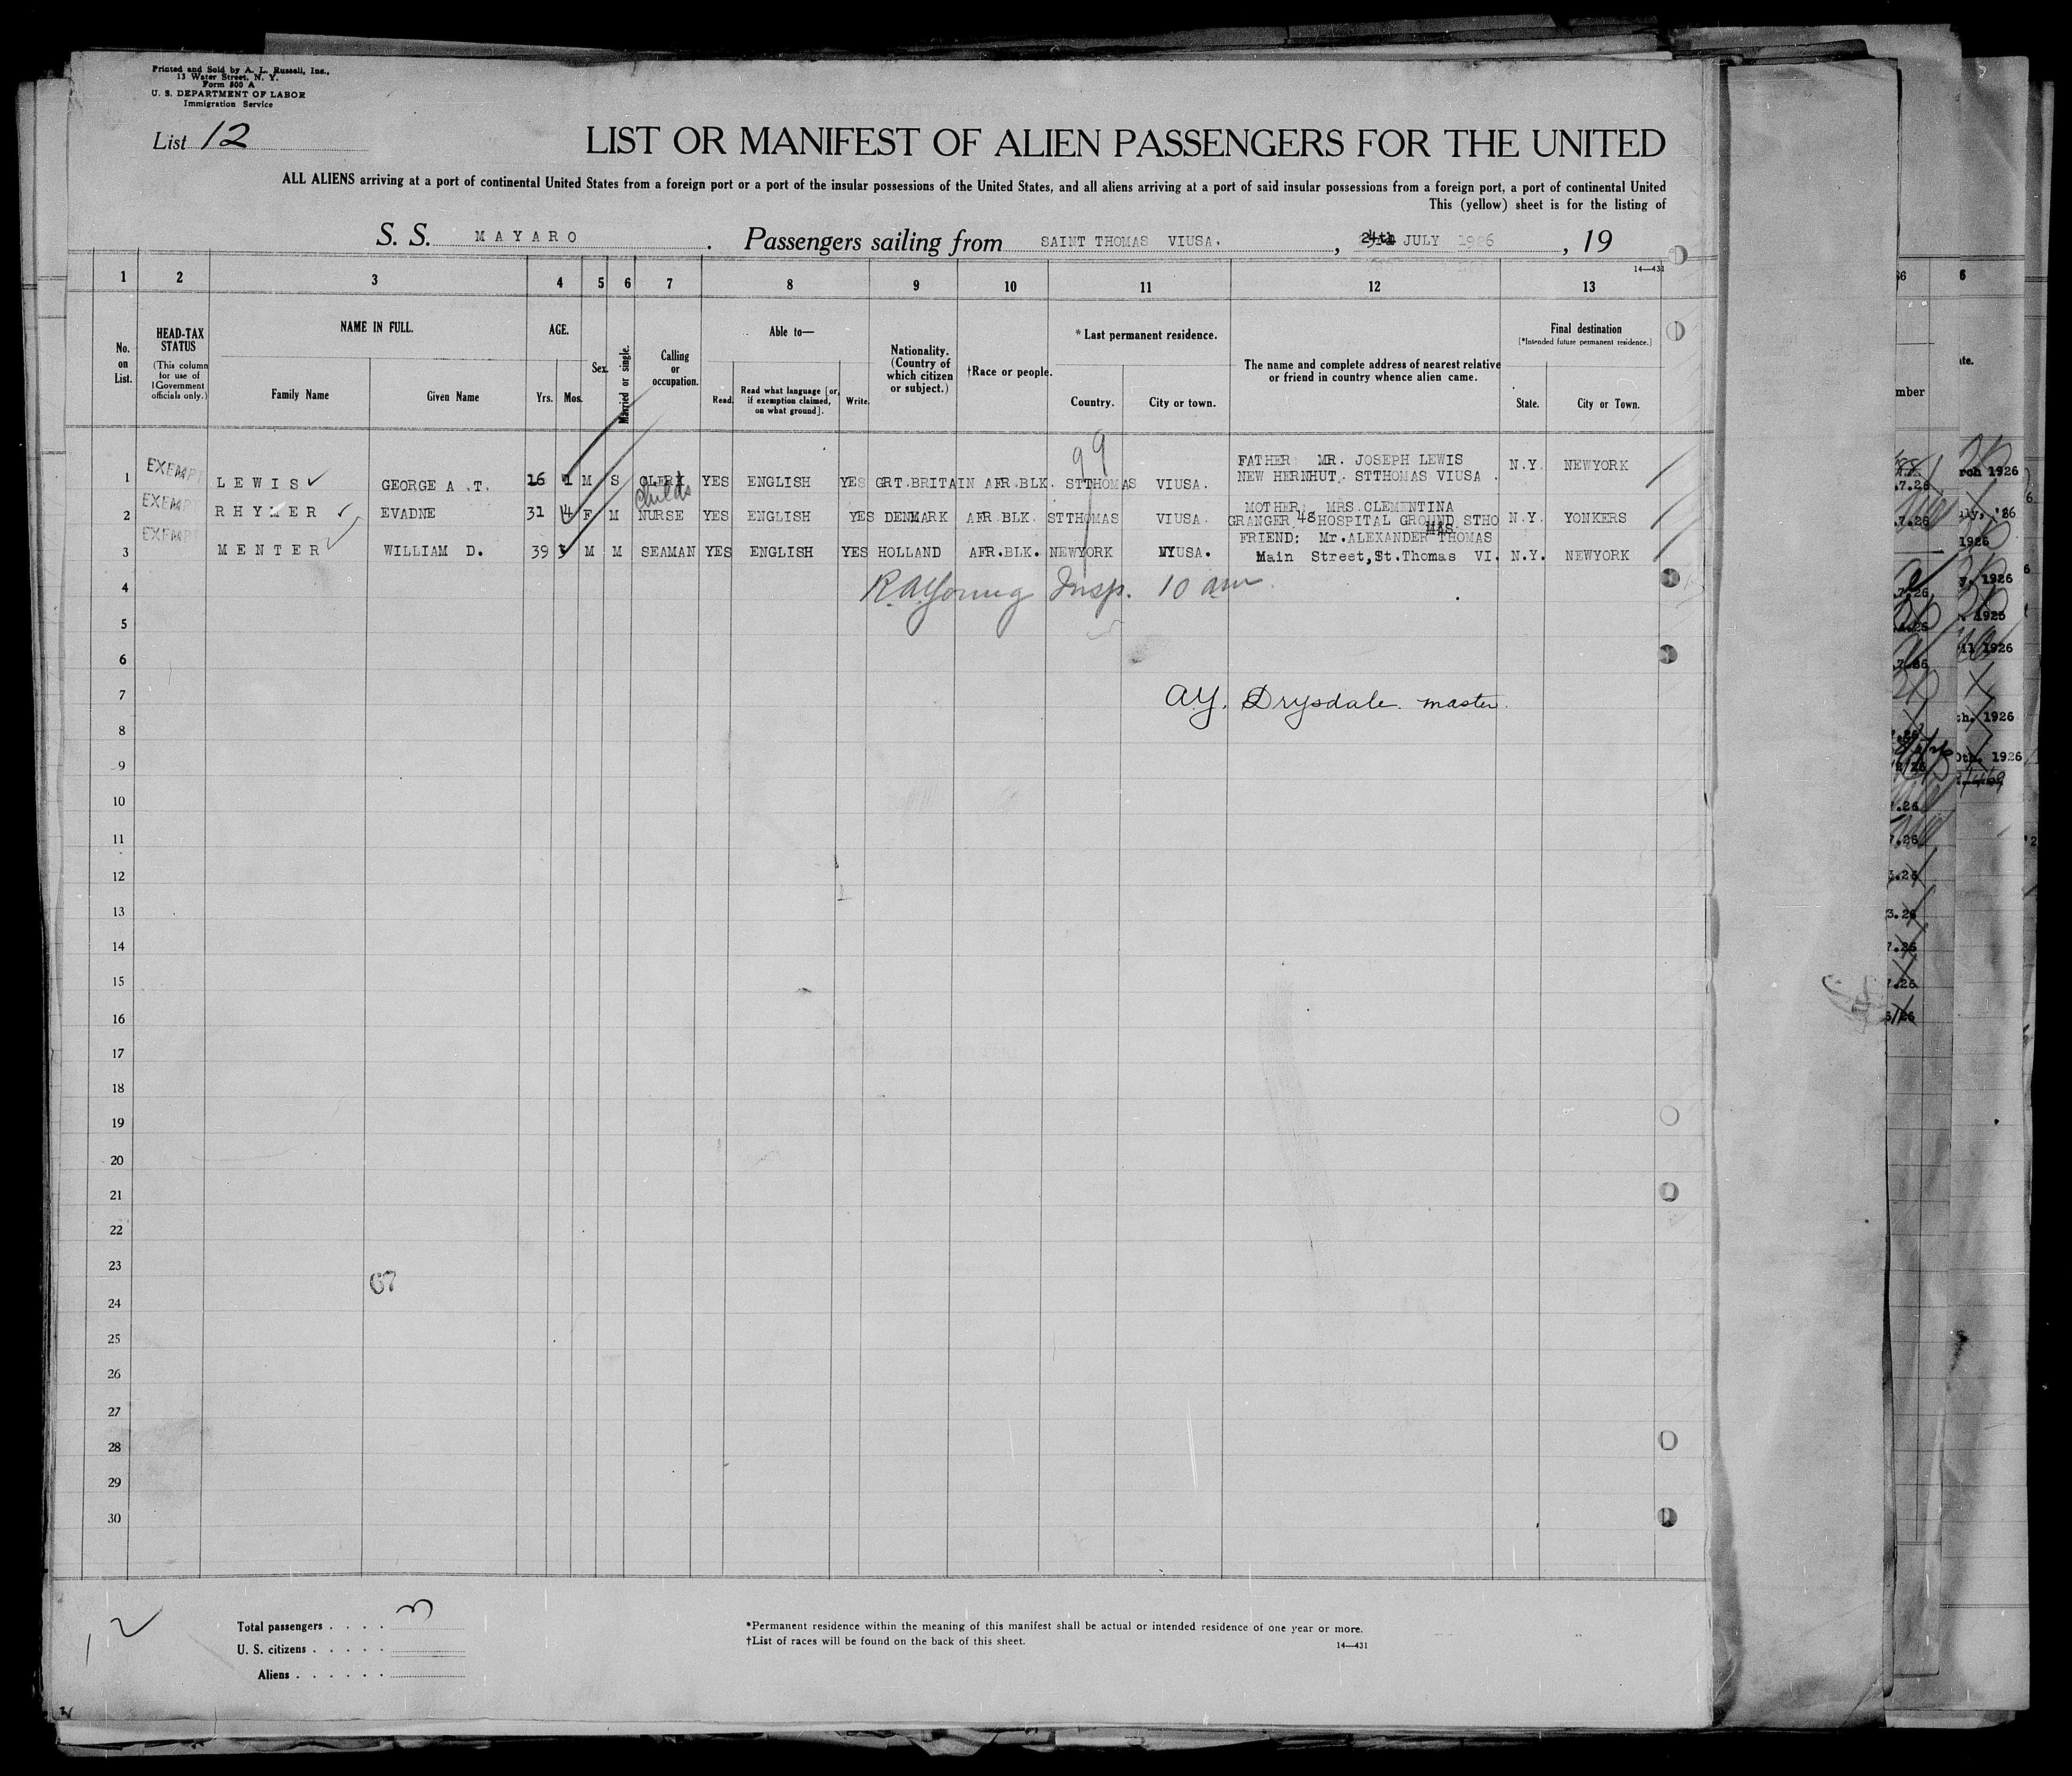 Printed and Sold by A. L. Russell, Inc.,
13 Water Street, N. Y.
Form 500 A
U. S. DEPARTMENT OF LABOR
Immigration Service
List 12
LIST OR MANIFEST OF ALIEN PASSENGERS FOR THE UNITED
ALL ALIENS arriving at a port of continental United States from a foreign port or a port of the insular possessions of the United States, and all aliens arriving at a port of said insular possessions from a foreign port, a port of continental United
This (yellow) sheet is for the listing of
S. S. MAYARO . Passengers sailing from SAINT THOMAS VIUSA. , 24th JULY 1926 , 19
14—431
1 2 3 4 5 6 7 8 9 10 11 12 13
No. on List.
HEAD-TAX STATUS
(This column for use of Government officials only.)
NAME IN FULL.
Family Name Given Name
AGE.
Yrs. Mos.
Sex.
Married or single.
Calling or occupation.
Able to—
Read. Read what language [or, if exemption claimed, on what ground]. Write.
Nationality. (Country of which citizen or subject.)
†Race or people.
*Last permanent residence.
Country. City or town.
The name and complete address of nearest relative or friend in country whence alien came.
Final destination
[*Intended future permanent residence.]
State. City or Town.
99
1 EXEMPT LEWIS GEORGE A .T. 16 1 M S CLERK YES ENGLISH YES GRT.BRITAIN AFR.BLK. STTHOMAS VIUSA. FATHER MR. JOSEPH LEWIS NEW HERNHUT. STTHOMAS VIUSA . N.Y. NEWYORK
2 EXEMPT RHYMER EVADNE 31 4 F M Childs NURSE YES ENGLISH YES DENMARK AFR.BLK. STTHOMAS VIUSA. MOTHER, MRS.CLEMENTINA GRANGER 48 HOSPITAL GROUND STHO MAS. N.Y. YONKERS
3 EXEMPT MENTER WILLIAM D. 39 M M SEAMAN YES ENGLISH YES HOLLAND AFR.BLK. NEWYORK NYUSA. FRIEND: Mr.ALEXANDER THOMAS Main Street,St.Thomas VI. N.Y. NEWYORK
4 R.A. Young Insp. 10 am.
5
6
7 A.Y. Drysdale master.
8
9
10
11
12
13
14
15
16
17
18
19
20
21
22
23
67
24
25
26
27
28
29
30
Total passengers . . . . 3
U. S. citizens . . . . .
Aliens . . . . . .
*Permanent residence within the meaning of this manifest shall be actual or intended residence of one year or more.
†List of races will be found on the back of this sheet.
14—431